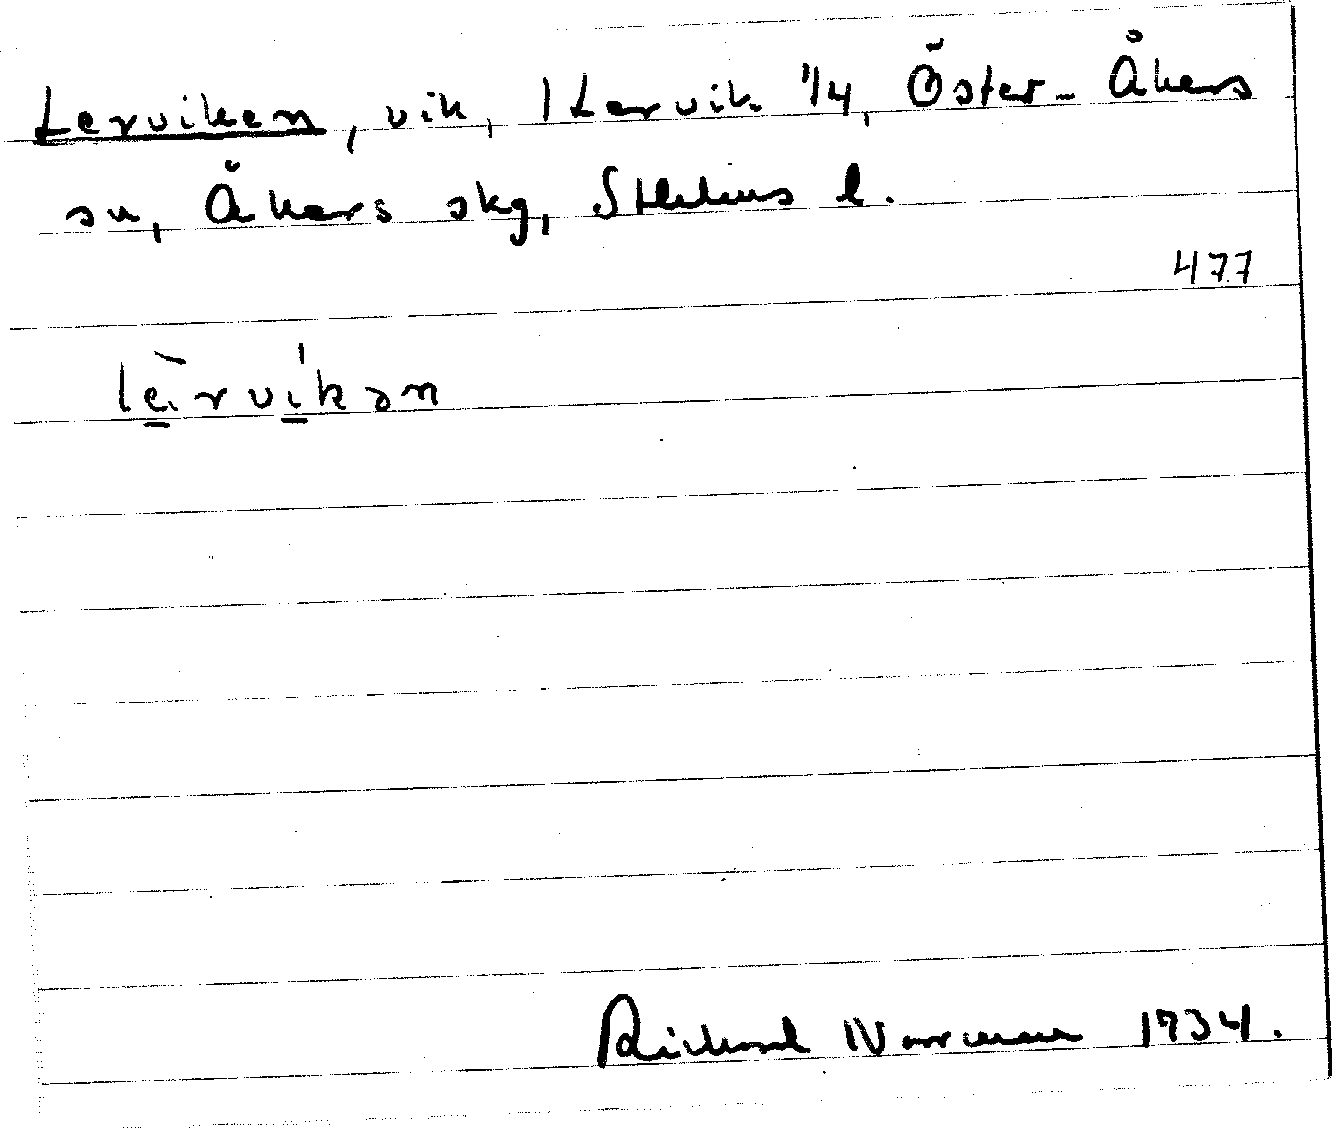 Lerviken, vik, 1 Lervik 1/4, Öster-Åkers
sn, Åkers skg, Sthlms l.
477
lè̱rvi̱kən
Richard Norrman 1934.